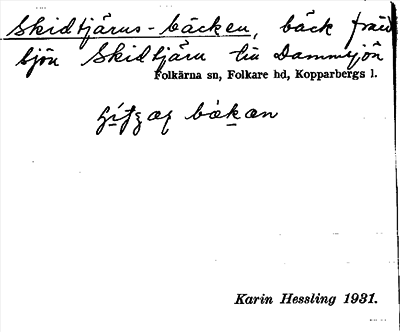 Skidtjärns-bäcken, bäck från
sjön Skidtjärn till Dammsjön
Folkärna sn, Folkare hd, Kopparbergs l.
bäkan
Karin Hessling 1931.